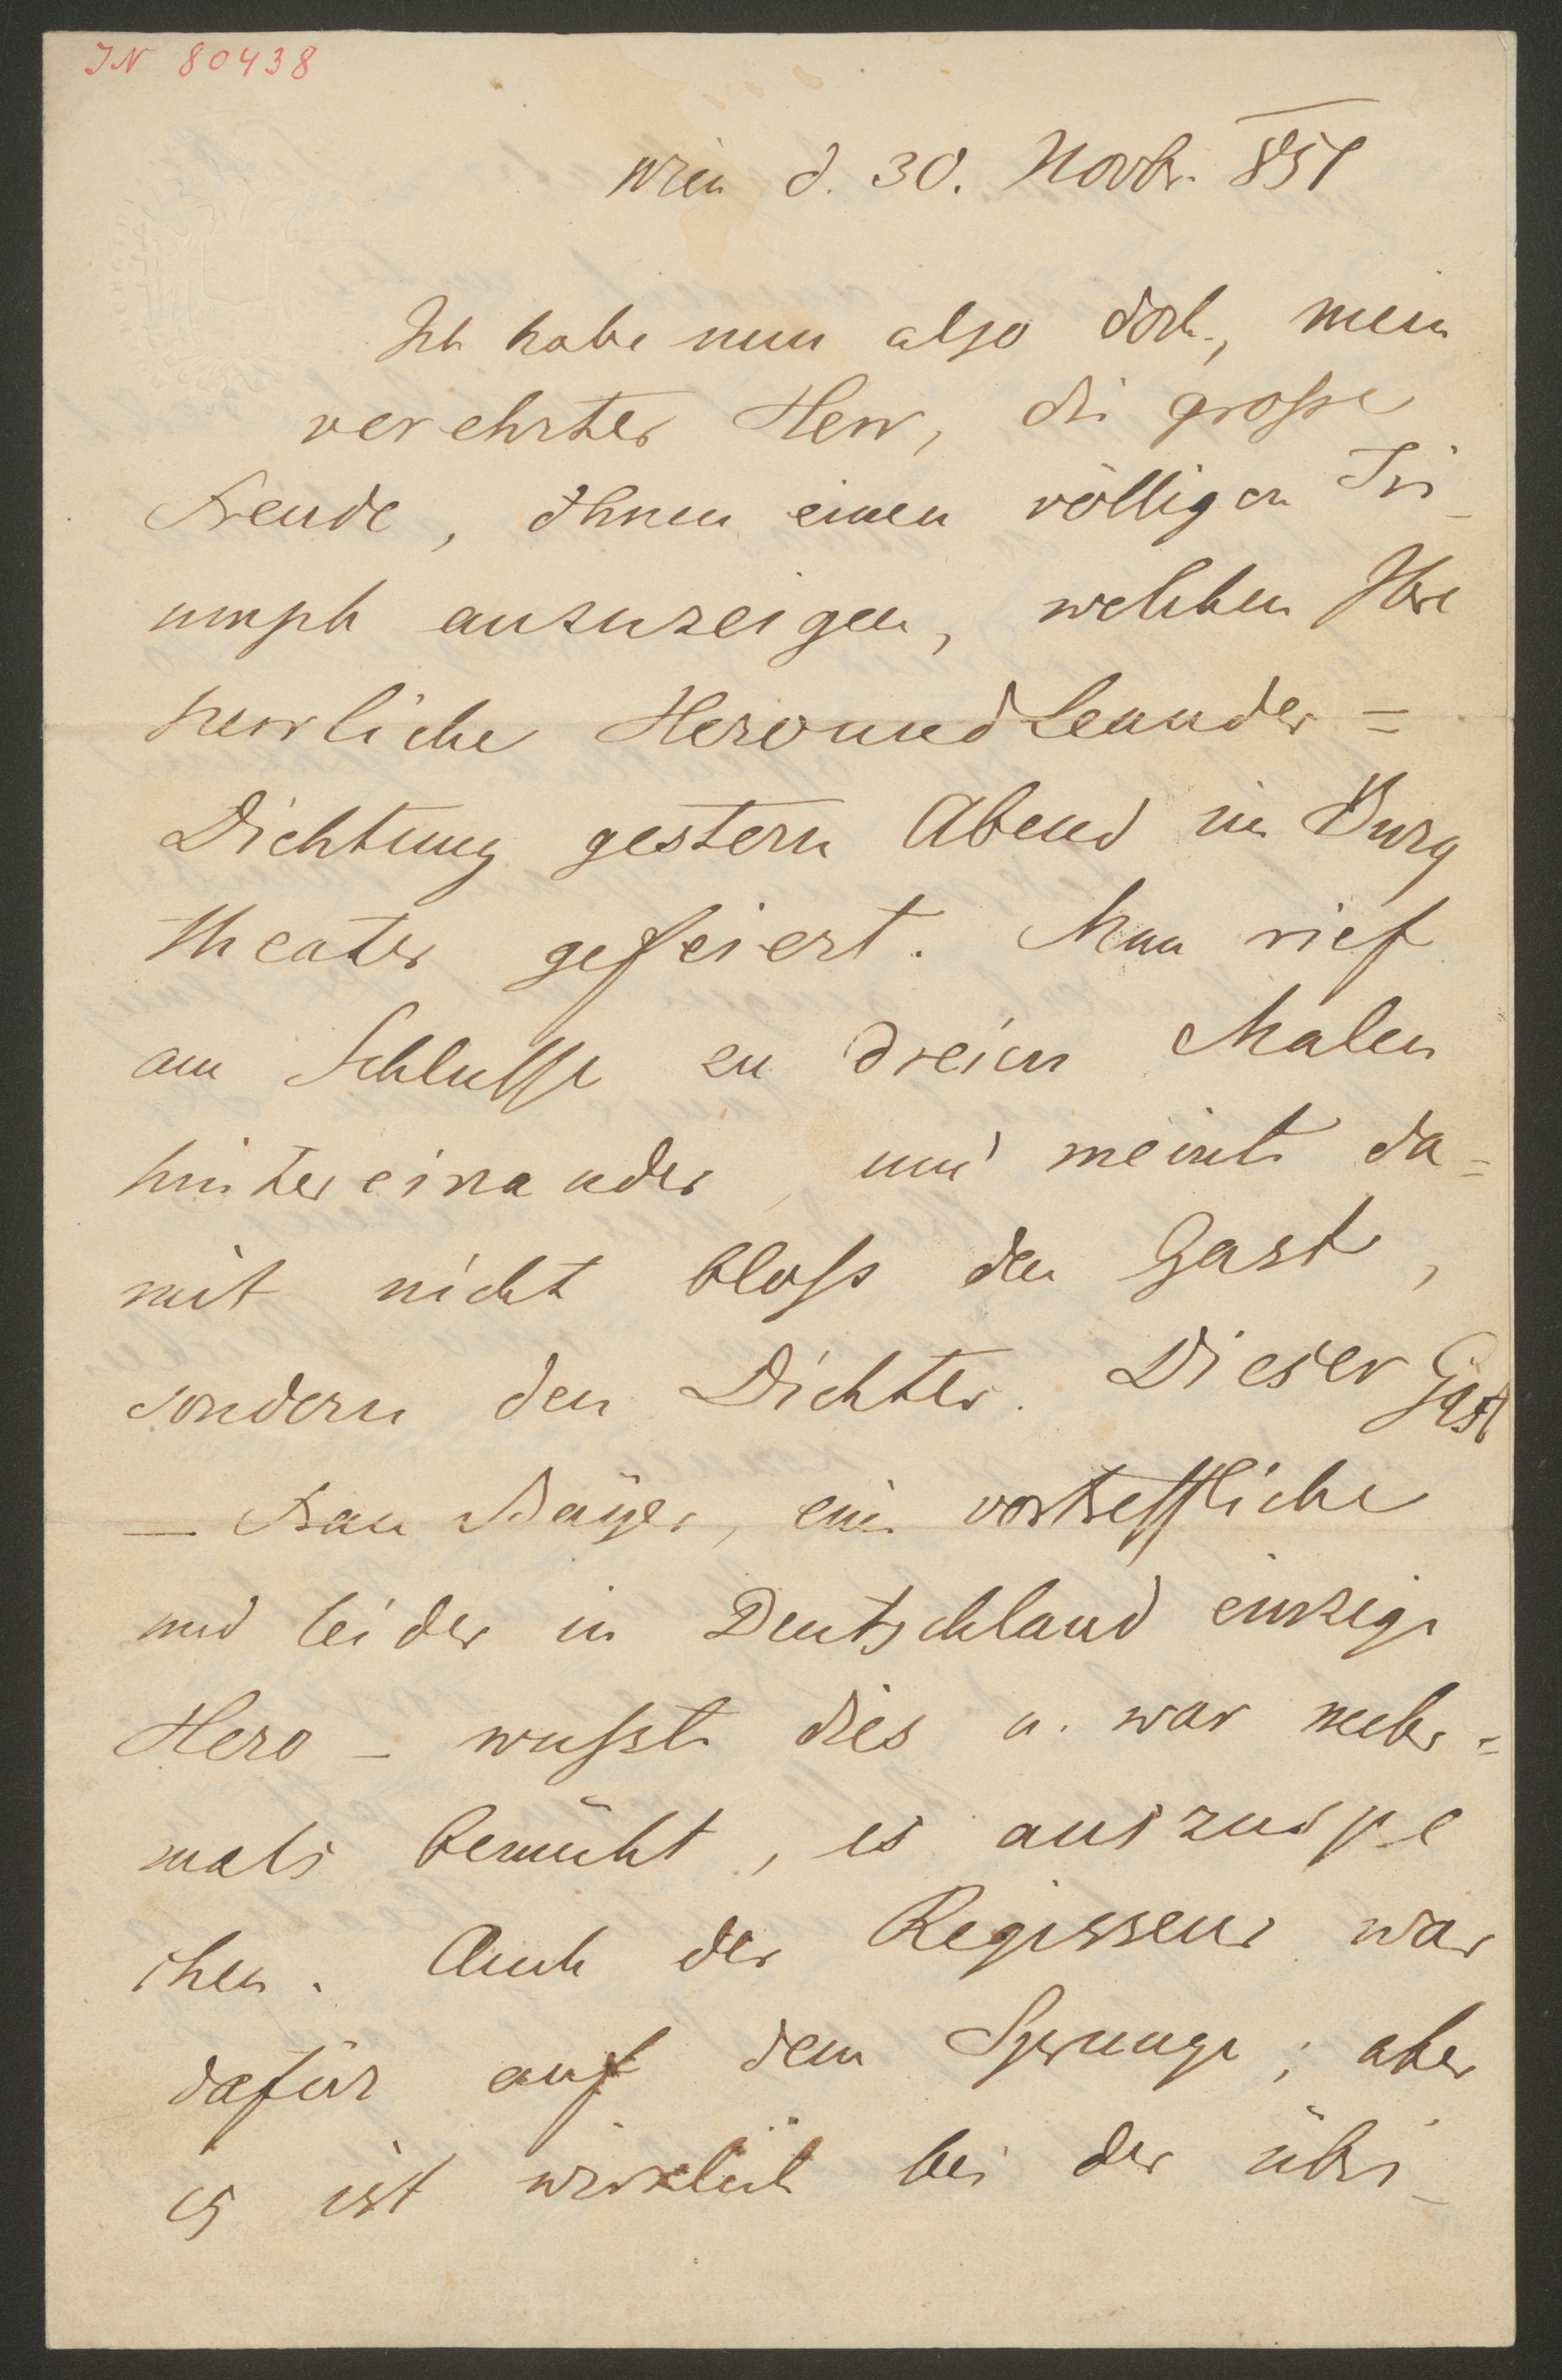 IN 80438
Wien d. 30. Novbr. 851
Ich habe nun also doch, mein
verehrter Herr, die große
Freude, Ihnen einen völligen Tri-
umph anzuzeigen, welchen Ihre
herrliche HeroundLeander=
Dichtung gestern Abend im Burg
theater gefeiert. Man rief
am Schlusse zu dreien Malen
hintereinander, und meinte da=
mit nicht bloß den Gast,
sondern den Dichter. Dieser Gast
— Frau Bayer, eine vortreffliche
und leider in Deutschland einzige
Hero – wußte dies u. war mehr=
mals bemüht, es auszuspre
chen. Auch der Regisseur war
dafür auf dem Sprunge; aber
es ist wirklich bei der übri-